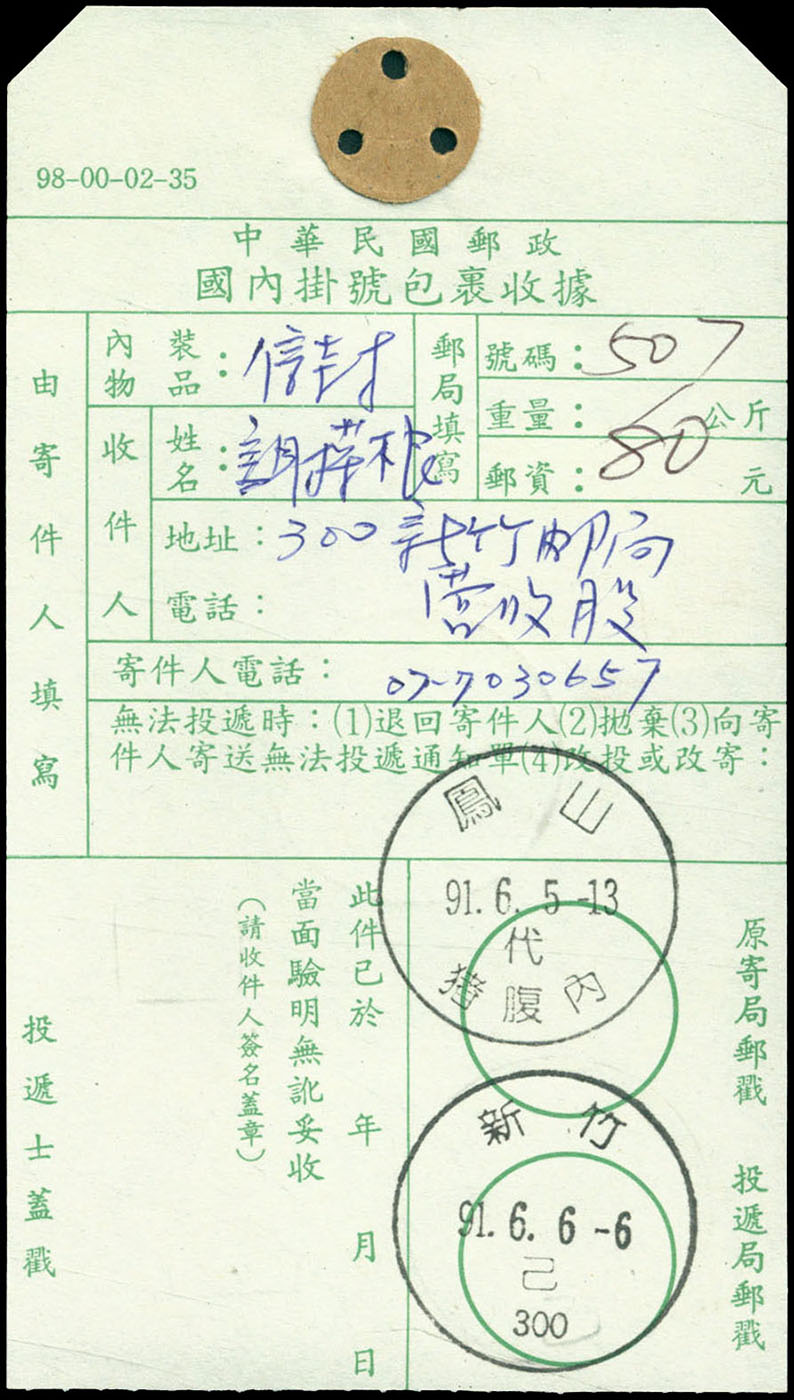 98-00-02-35
中華民國郵政
國內掛號包裹收據
由寄件人填寫
內物裝品：信封
郵局填寫
號碼：507
重量：公斤
郵資：80元
收件人
姓名：
地址：300新竹邮局
营收股
電話：
寄件人電話：07-7030657
無法投遞時：(1)退回寄件人(2)拋棄(3)向寄
件人寄送無法投遞通知單(4)改投或改寄：
鳳山
91.6.5-13
代
內腹
原寄局郵戳
新竹
91.6.6-6
己
300
投遞局郵戳
此件已於 年 月 日
當面驗明無訛妥收
（請收件人簽名蓋章）
投遞士蓋戳